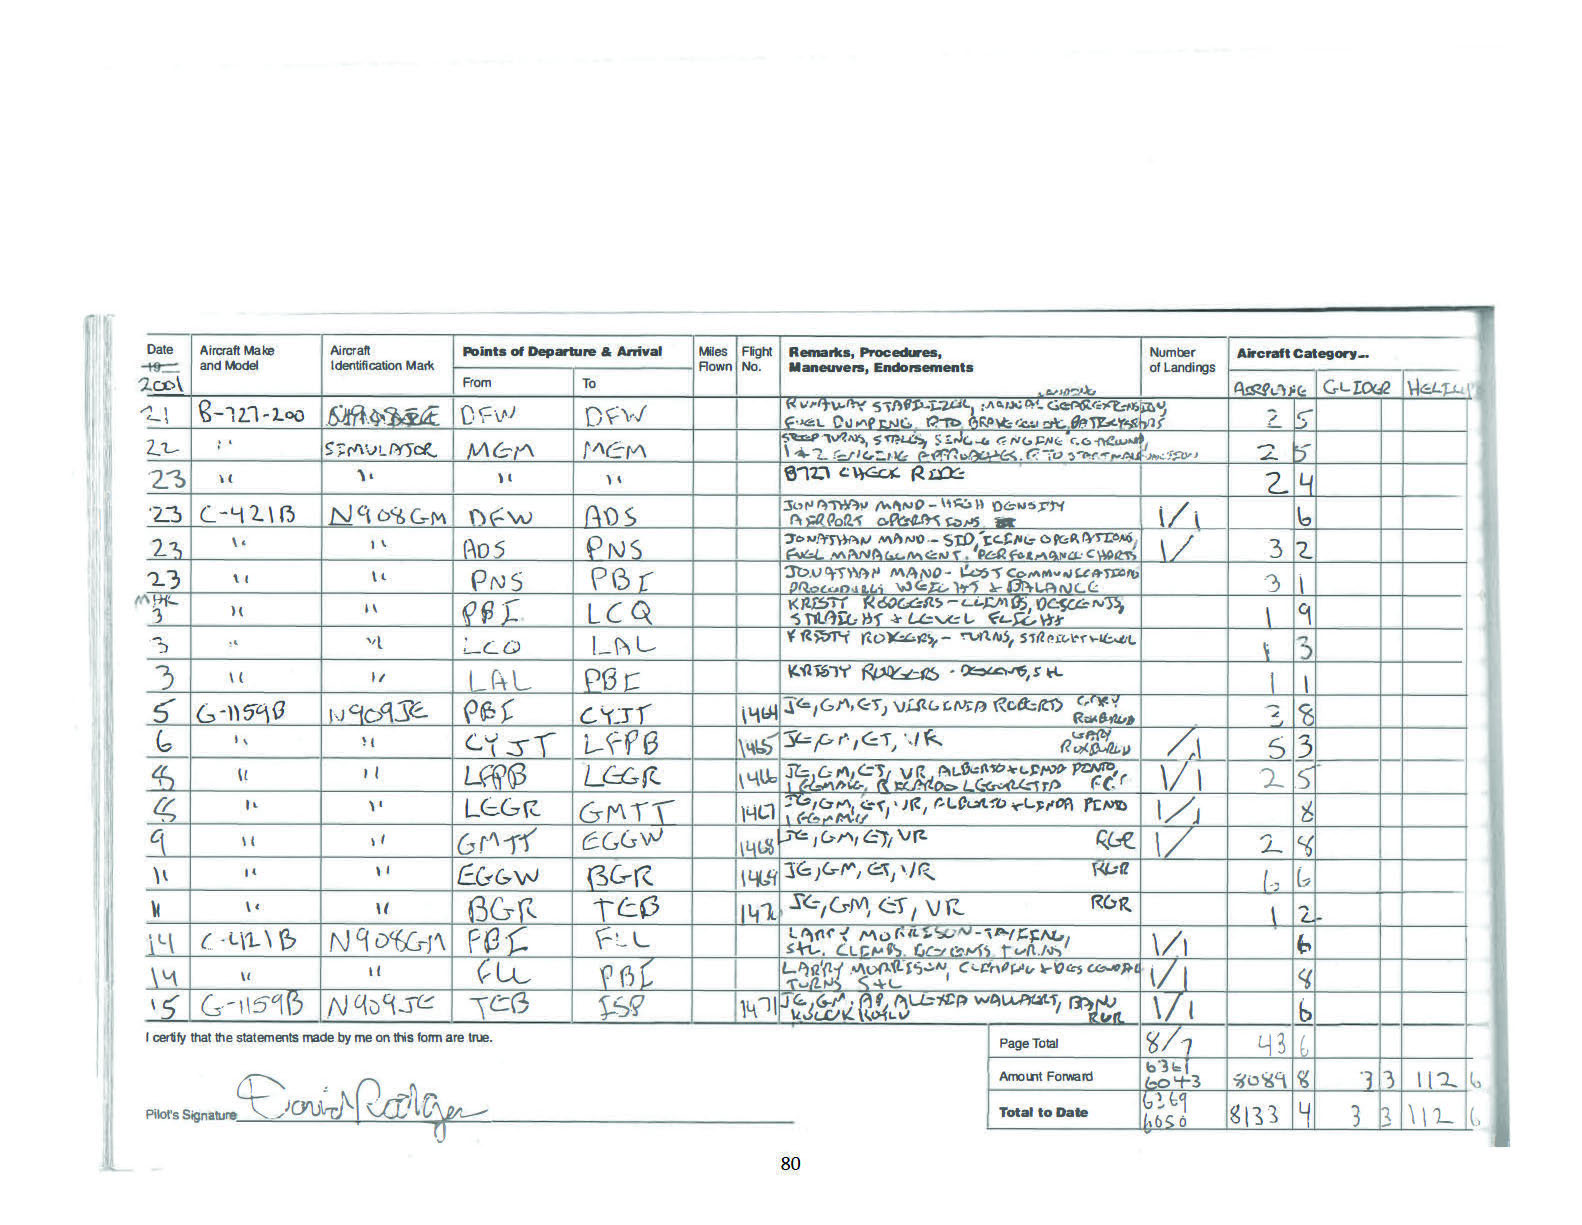 Date Aircraft Make Aircraft Points of Departure & Arrival Miles Flight Remarks, Procedures, Number Aircraft Category...
19 and Model Identification Mark Flown No. Maneuvers, Endorsements of Landings
2001 From To AIRPLANE GLIDER
21 B-727-200 DFW DFW RUNAWAY STABILIZER, MANUAL GEAR EXTENSION, 2 5
FUEL DUMPING, RTO
22 " SIMULATOR MEM MEM STEEP TURNS, STALLS, SINGLE ENGINE GO AROUND, 2 5
1 + 2 ENGINE APPROACHES,
23 " " " " B727 CHECK RIDE 2 4
23 C-421B N908GM DFW ADS JONATHAN MANO - HIGH DENSITY 1/1 6
AIRPORT OPERATIONS
23 " " ADS PNS JONATHAN MANO - SID, ICING OPERATIONS, 1/ 3 2
FUEL MANAGEMENT, PERFORMANCE CHARTS
23 " " PNS PBI JONATHAN MANO - LOST COMMUNICATIONS 3 1
PROCEDURES WEIGHT & BALANCE
MAR
3 " " PBI LCQ KRISTY RODGERS - CLIMBS, DESCENTS, 1 9
STRAIGHT + LEVEL FLIGHT
3 " " LCQ LAL KRISTY RODGERS, - TURNS, STRAIGHT + LEVEL 1 3
3 " " LAL PBI KRISTY RODGERS - S+L 1 1
5 G-1159B N909JE PBI CYJT 1464 JE, GM, ET, VIRGINIA ROBERTS GARY 3 8
ROXBURGH
6 " " CYJT LFPB 1465 JE, GM, ET, VR GARY /1 5 3
ROXBURGH
8 " " LFPB LEGR 1466 JE, GM, ET, VR, ALBERTO + LINDA PINTO, 1/1 2 5
RICARDO LEGORRETTA
8 " " LEGR GMTT 1467 JE, GM, ET, VR, ALBERTO + LINDA PINTO 1/1 8
9 " " GMTT EGGW 1468 JE, GM, ET, VR RGR 1/ 2 8
11 " " EGGW BGR 1469 JE, GM, ET, VR RGR 6 6
11 " " BGR TEB 1470 JE, GM, ET, VR RGR 1 2
14 C-421B N908GM PBI FLL LARRY MORRISON - TAXIING, 1/1 6
S+L, CLIMBS, DESCENTS, TURNS
14 " " FLL PBI LARRY MORRISON, CLIMBING + DESCENDING 1/1 8
TURNS S+L
15 G-1159B N909JE TEB ISP 1471 JE, GM, AP, ALEXIA WALLAERT, BANU 1/1 6
KUCUKKOYLU RGR
I certify that the statements made by me on this form are true.
Page Total 8/7 43 6
Amount Forward 6361 6043 8089 8 3 3 112 6
Total to Date 6369 6050 8133 4 3 3 112 6
Pilot's Signature David Rodgers
80